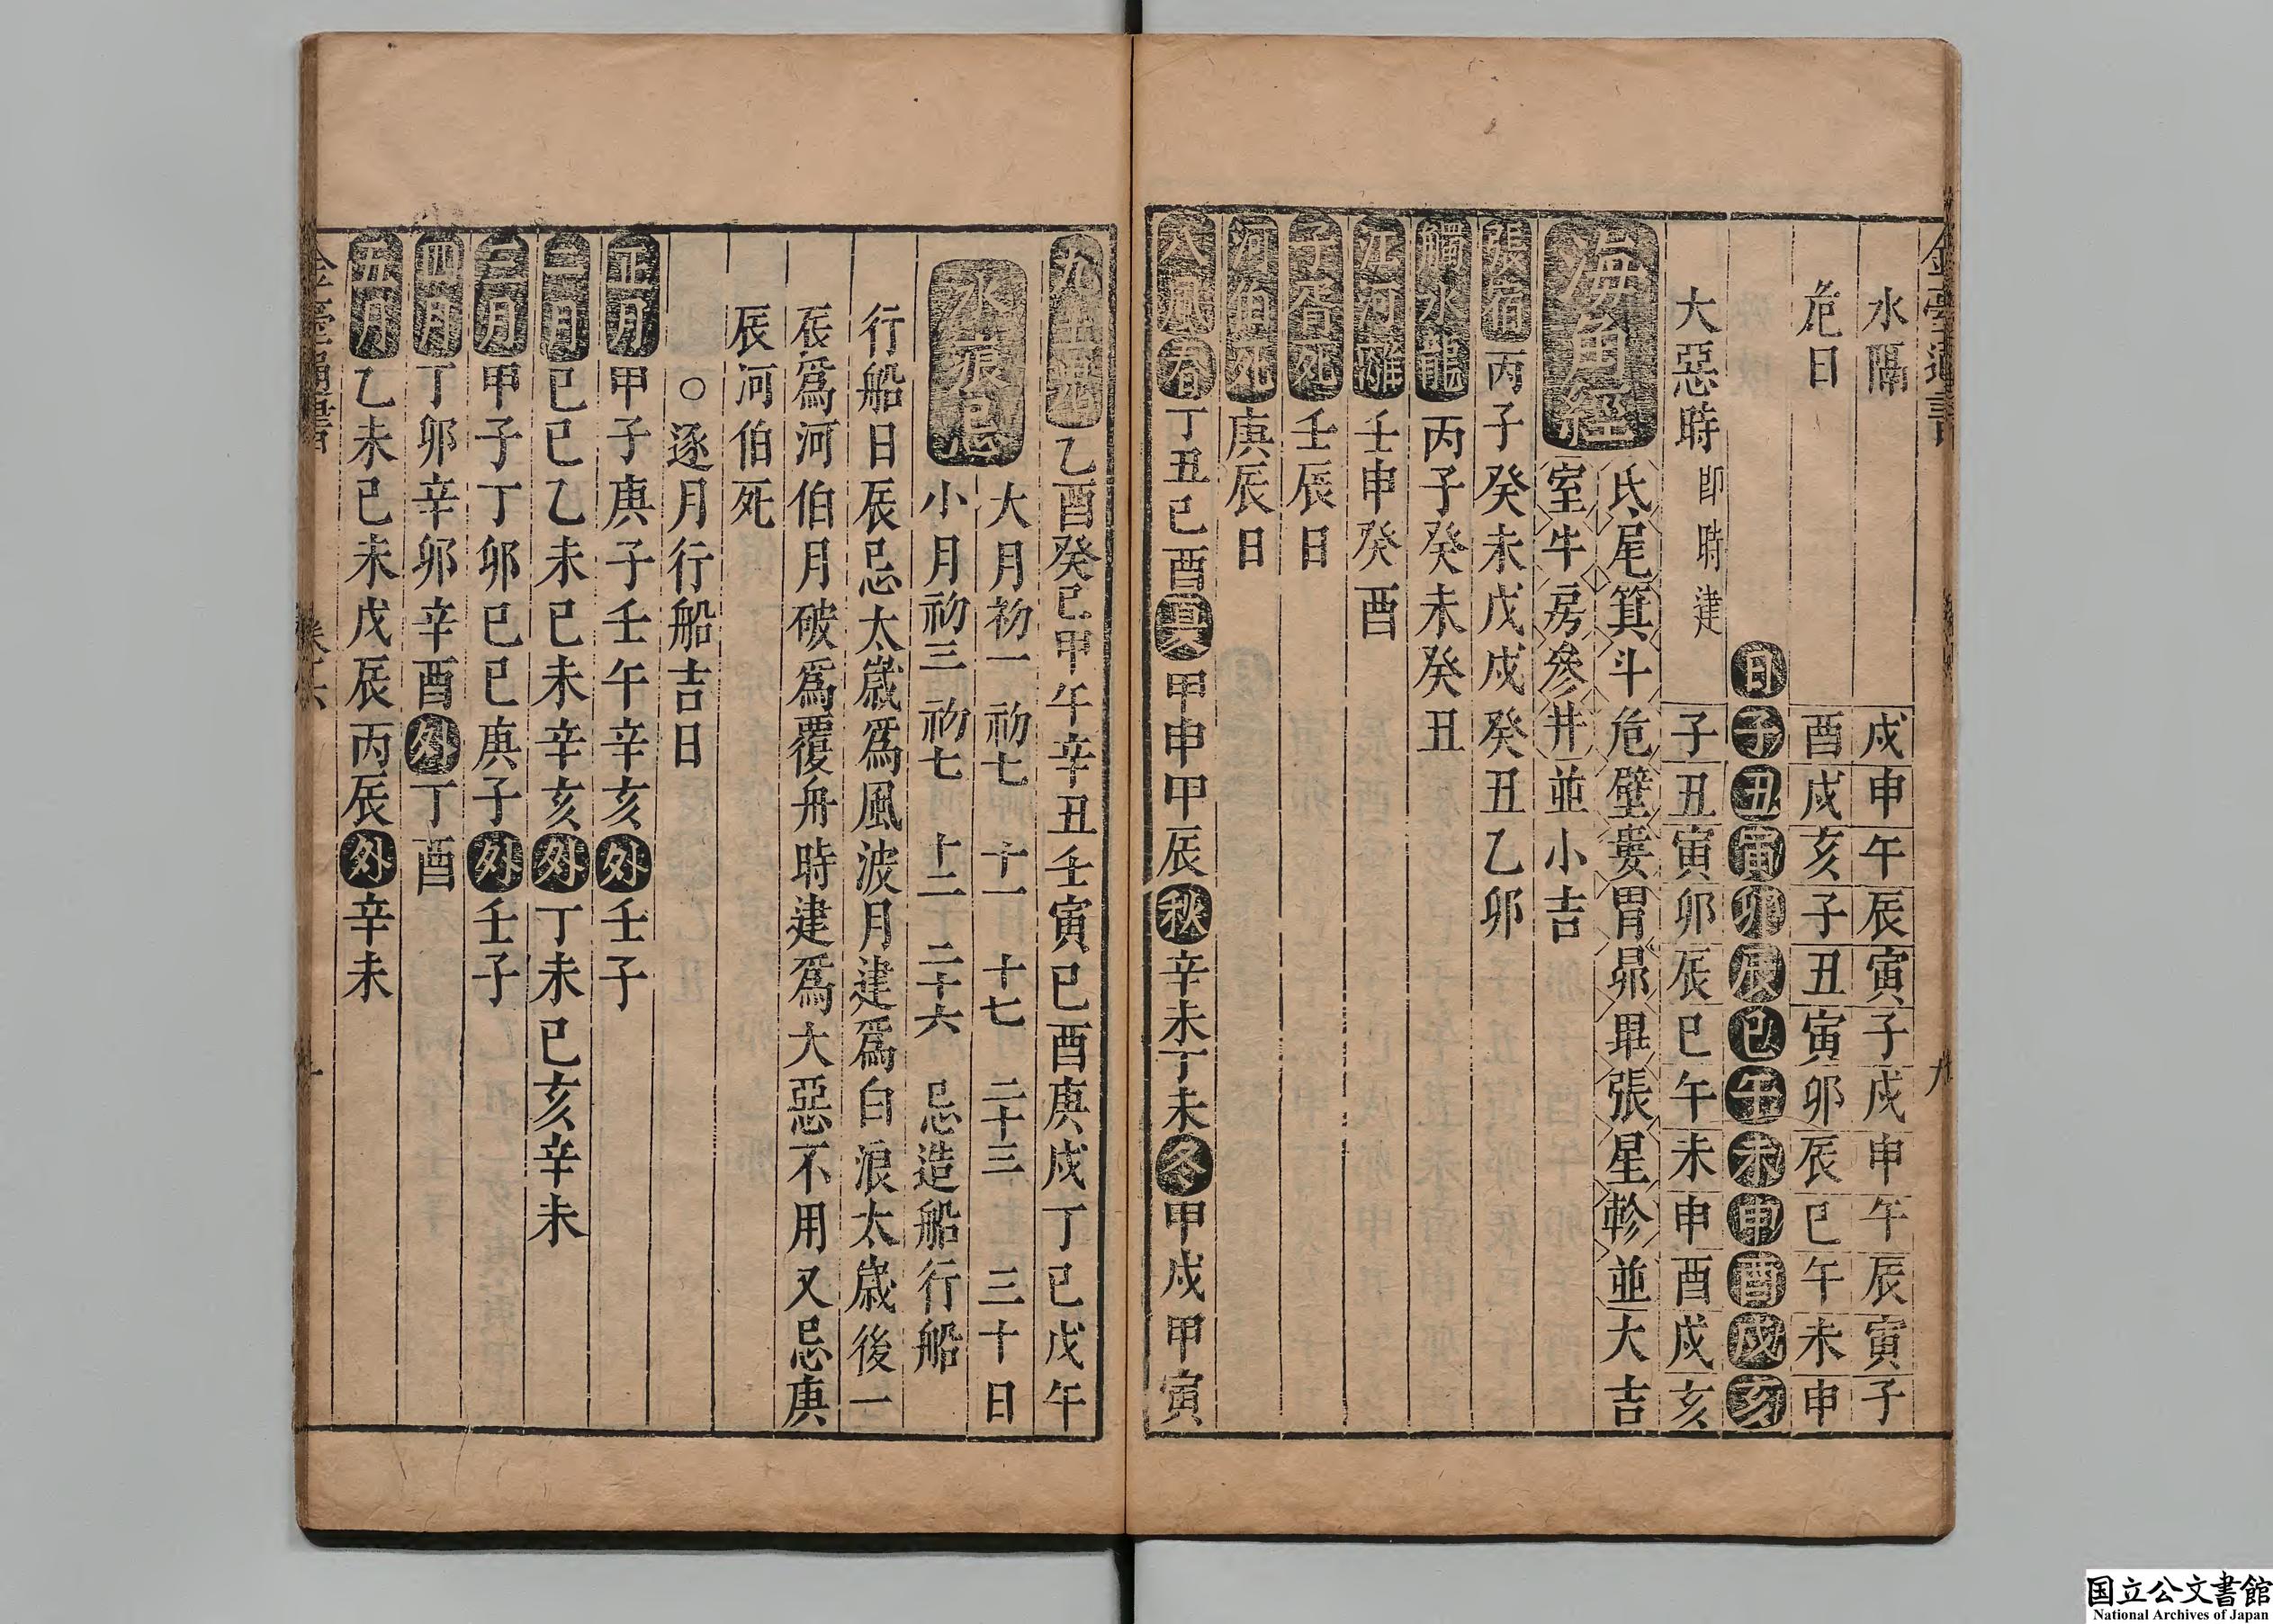 水隔 戌申午辰寅子戌申午辰寅子
危日 酉戌亥子丑寅卯辰巳午未申
日子丑寅卯辰巳午未申酉戌亥
大惡時 即時建 子丑寅卯辰巳午未申酉戌亥
海角經
氐尾箕斗危壁婁胃昴畢張星軫並大吉
室牛房參井並小吉
張宿 丙子癸未戊戌癸丑乙卯
觸水龍 丙子癸未癸丑
江河離 壬申癸酉
子胥死 壬辰日
河伯死 庚辰日
八風 春 丁丑己酉 夏 甲申甲辰 秋 辛未丁未 冬 甲戌甲寅
乙酉癸巳甲午辛丑壬寅己酉庚戌丁巳戊午
水痕忌
大月初一 初七 十一 十七 二十三 三十日
小月初三 初七 十二 二十六 忌造船行船
行船日辰忌太歲爲風波月建爲白浪太歲後一
辰爲河伯月破爲覆舟時建爲大惡不用又忌庚
辰河伯死
○逐月行船吉日
正月 甲子庚子壬午辛亥 外 壬子
二月 己巳乙未己未辛亥 外 丁未己亥辛未
三月 甲子丁卯己巳庚子 外 壬子
四月 丁卯辛卯辛酉 外 丁酉
五月 乙未己未戊辰丙辰 外 辛未
国立公文書館
National Archives of Japan